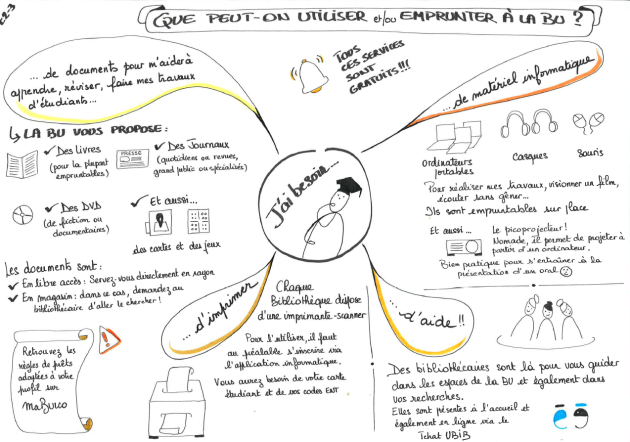 C2-3
QUE PEUT-ON UTILISER et/ou EMPRUNTER À LA BU ?
... de documents pour m'aider à
apprendre, réviser, faire mes travaux
d'étudiants...
TOUS
CES SERVICES
SONT
GRATUITS!!!
... de matériel informatique
LA BU VOUS PROPOSE :
✓ Des Livres
(pour la plupart
empruntables)
PRESSE
✓ Des Journaux
(quotidiens ou revues,
grand public ou spécialisés)
✓ Des DVD
(de fiction ou
documentaires)
✓ Et aussi...
des cartes et des jeux
Les documents sont :
✓ En libre accès : Servez-vous directement en rayon
✓ En magasin : dans ce cas, demandez au
bibliothécaire d'aller le chercher !
Retrouvez les
règles de prêts
adaptées à votre
profil sur
MaBUCO
J'ai besoin...
ordinateurs
portables
Casques
Souris
Pour réaliser mes travaux, visionner un film,
écouter sans gêner...
Ils sont empruntables sur place
Et aussi ...
Le picoprojecteur !
Nomade, il permet de projeter à
partir d'un ordinateur.
Bien pratique pour s'entraîner à la
présentation d'un oral
... d'imprimer
Chaque
Bibliothèque dispose
d'une imprimante-scanner
Pour l'utiliser, il faut
au préalable s'inscrire via
l'application informatique.
Vous aurez besoin de votre carte
étudiant et de vos codes ENT
... d'aide !!
Des bibliothécaires sont là pour vous guider
dans les espaces de la BU et également dans
vos recherches.
Elles sont présentes à l'accueil et
également en ligne via le
Tchat UBIB